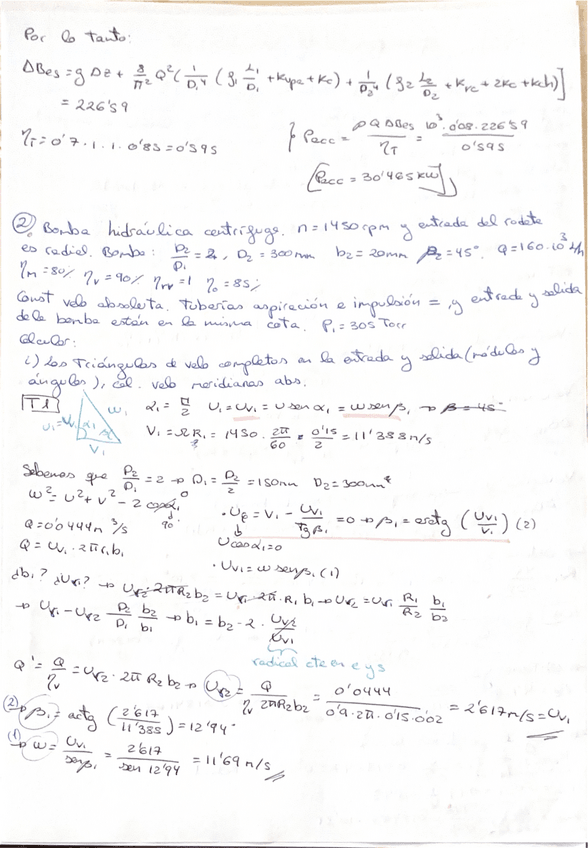 Por lo tanto:
ΔBes = g Δz + 8/π² Q² (1/D₁⁴ (ξ₁ L₁/D₁ + Kvpa + Kc) + 1/D₂⁴ (ξ₂ L₂/D₂ + Kvc + 2Kc + Kch)]
= 226'59
ηT = 0'7 · 1 · 1 · 0'85 = 0'595
} Pacc = ρ Q ΔBes / ηT = 10³ · 0'08 · 226'59 / 0'595
[Pacc = 30'465 kW]
② Bomba hidráulica centrífuga. n = 1450 rpm y entrada del rodete
es radial. Bomba: D₂/D₁ = 2, D₂ = 300mm b₂ = 20mm β₂ = 45°. Q = 160·10³ l/h
ηm = 80% ηv = 90% ηrv = 1 η₀ = 85%
Const velo absoluta. Tuberías aspiración e impulsión =, y entrada y salida
de la bomba están en la misma cota. P₁ = 305 Torr
Calcular:
i) Los Triángulos de velo completos en la entrada y salida (módulos y
ángulos), cál. velo meridianas abs.
T1
U₁ = Uv₁
α₁
w₁
V₁
α₁ = π/2 U₁ = Uv₁ = U sen α₁ = w sen β₁ → β = 45
V₁ = Ω R₁ = 1450 · 2π/60 · 0'15/2 = 11'388 m/s
Sabemos que D₂/D₁ = 2 → D₁ = D₂/2 = 150mm D₂ = 300mm
w² = U² + V² - 2 cos α₁
0
90
· Uφ = V₁ - Uv₁/tg β₁ = 0 → β₁ = arctg (Uv₁/V₁) (2)
Q = 0'0444 m³/s
U cos α₁ = 0
Q = Uv₁ · 2π r₁ b₁
· Uv₁ = w sen β₁ (1)
¿b₁? ¿Ur₁? → Ur₂ · 2π R₂ b₂ = Ur₁ 2π · R₁ b₁ → Ur₂ = Ur₁ R₁/R₂ b₁/b₂
→ Ur₁ - Ur₂ D₂/D₁ b₂/b₁ → b₁ = b₂ · 2 · Uv₂/Uv₁
radical cte en e y s
Q' = Q/ηv = Ur₂ · 2π R₂ b₂ → Ur₂ = Q / ηv 2π R₂ b₂ = 0'0444 / 0'9 · 2π · 0'15 · 0'02 = 2'617 m/s = Uv₁
(2) → β₁ = arctg (2'617/11'385) = 12'94°
(1) → w = Uv₁/sen β₁ = 2'617/sen 12'94 = 11'69 m/s